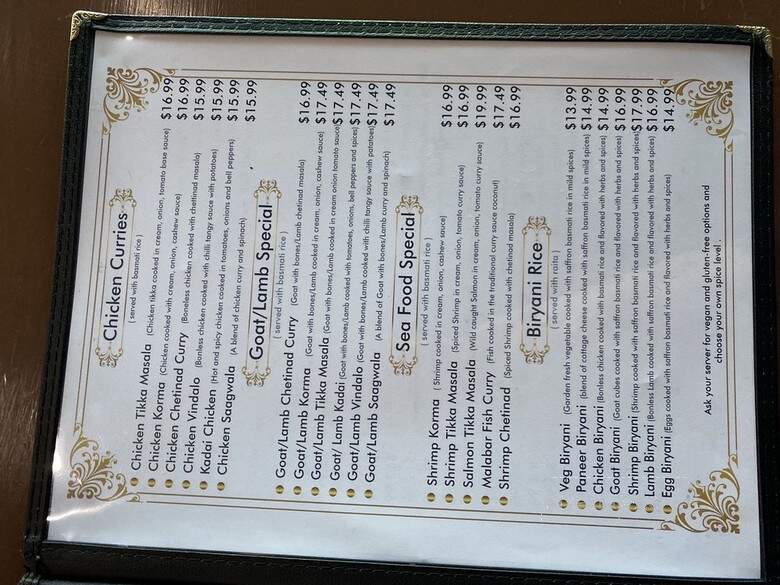 Chicken Curries
( served with basmati rice )
Chicken Tikka Masala (Chicken tikka cooked in cream, onion, tomato base sauce) $16.99
Chicken Korma (Chicken cooked with cream, onion, cashew sauce) $16.99
Chicken Chetinad Curry (Boneless chicken cooked with chettinad masala) $15.99
Chicken Vindalo (Bonless chicken cooked with chilli tangy sauce with potatoes) $15.99
Kadai Chicken (Hot and spicy chicken cooked in tomatoes, onions and bell peppers) $15.99
Chicken Saagwala (A blend of chicken curry and spinach) $15.99
Goat/Lamb Special
( served with basmati rice )
Goat/Lamb Chetinad Curry (Goat with bones/Lamb chetinad masala) $16.99
Goat/Lamb Korma (Goat with bones/Lamb cooked in cream, onion, cashew sauce) $17.49
Goat/Lamb Tikka Masala (Goat with bones/Lamb cooked in cream onion tomato sauce) $17.49
Goat/ Lamb Kadai (Goat with bones/Lamb cooked with tomatoes, onions, bell peppers and spices) $17.49
Goat/Lamb Vindalo (Goat with bones/Lamb cooked with chilli tangy sauce with potatoes) $17.49
Goat/Lamb Saagwala (A blend of Goat with bones/Lamb curry and spinach) $17.49
Sea Food Special
( served with basmati rice )
Shrimp Korma ( Shrimp cooked in cream, onion, cashew sauce) $16.99
Shrimp Tikka Masala (Spiced Shrimp in cream, onion, tomato curry sauce) $16.99
Salmon Tikka Masala (Wild caught Salmon in cream, onion, tomato curry sauce) $19.99
Malabar Fish Curry (Fish cooked in the traditional curry sauce coconut) $17.49
Shrimp Chetinad (Spiced Shrimp cooked with chetinad masala) $16.99
Biryani Rice
( served with raita )
Veg Biryani (Garden fresh vegetable cooked with saffron basmati rice in mild spices) $13.99
Paneer Biryani (blend of cottage cheese cooked with saffron basmati rice in mild spices) $14.99
Chicken Biryani (Bonless chicken cooked with basmati rice and flavored with herbs and spices) $14.99
Goat Biryani (Goat cubes cooked with saffron basmati rice and flavored with herbs and spices) $16.99
Shrimp Biryani (Shrimp cooked with saffron basmati rice and flavored with herbs and spices) $17.99
Lamb Biryani (Bonless Lamb cooked with basmati rice and flavored with herbs and spices) $16.99
Egg Biryani (Eggs cooked with saffron basmati rice and flavored with herbs and spices) $14.99
Ask your server for vegan and gluten-free options and
choose your own spice level .